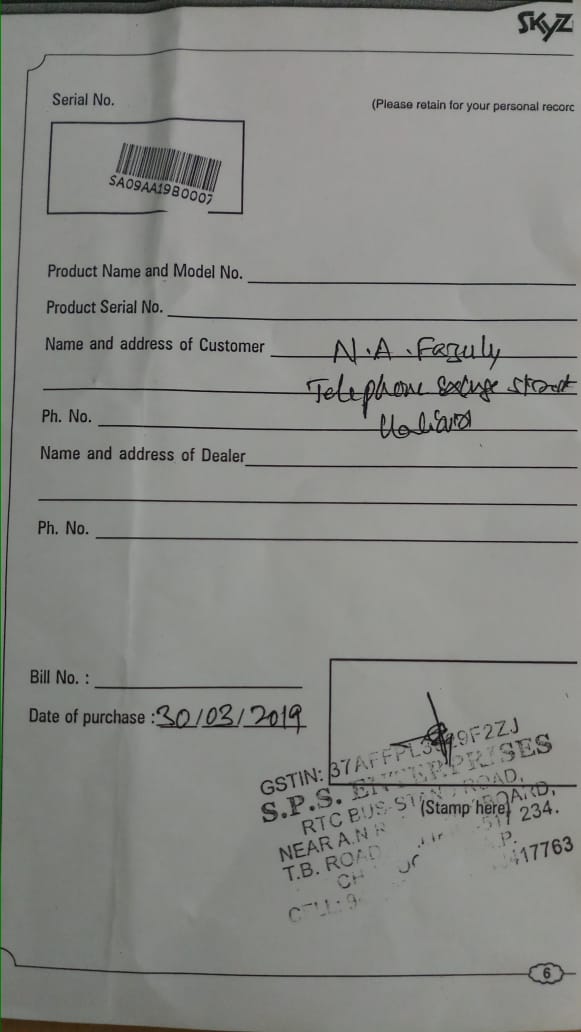 SKYZ
Serial No.
(Please retain for your personal recorc
SA09AA19B0007
Product Name and Model No.
Product Serial No.
Name and address of Customer N.A.Fazuly
Telephone
Ph. No.
Name and address of Dealer
Ph. No.
Bill No. :
Date of purchase : 30/03/2019
GSTIN: 37AFFPL3 9F2ZJ
S.P.S. ENTERPRISES
RTC BUS-STAND ROAD,
(Stamp here)
NEAR A.N
T.B. ROAD 234.
CELL: 9 417763
6